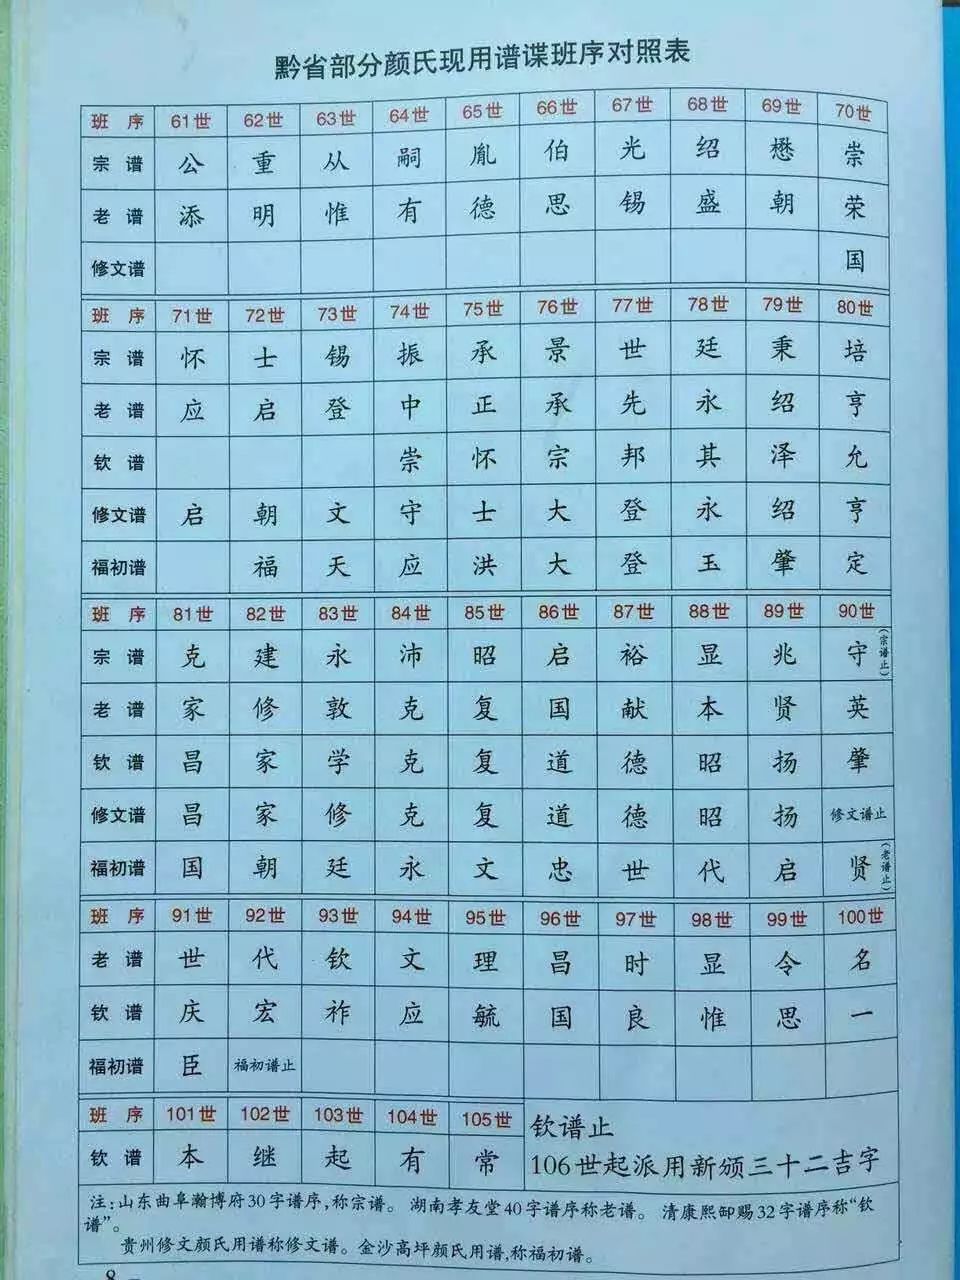 黔省部分颜氏现用谱谍班序对照表
班序 61世 62世 63世 64世 65世 66世 67世 68世 69世 70世
宗谱 公 重 从 嗣 胤 伯 光 绍 懋 崇
老谱 添 明 惟 有 德 思 锡 盛 朝 荣
修文谱 国
班序 71世 72世 73世 74世 75世 76世 77世 78世 79世 80世
宗谱 怀 士 锡 振 承 景 世 廷 秉 培
老谱 应 启 登 中 正 承 先 永 绍 亨
钦谱 崇 怀 宗 邦 其 泽 允
修文谱 启 朝 文 守 士 大 登 永 绍 亨
福初谱 福 天 应 洪 大 登 玉 肇 定
班序 81世 82世 83世 84世 85世 86世 87世 88世 89世 90世
宗谱 克 建 永 沛 昭 启 裕 显 兆 守 (宗谱止)
老谱 家 修 敦 克 复 国 献 本 贤 英
钦谱 昌 家 学 克 复 道 德 昭 扬 肇
修文谱 昌 家 修 克 复 道 德 昭 扬 修文谱止
福初谱 国 朝 廷 永 文 忠 世 代 启 贤 (老谱止)
班序 91世 92世 93世 94世 95世 96世 97世 98世 99世 100世
老谱 世 代 钦 文 理 昌 时 显 令 名
钦谱 庆 宏 祚 应 毓 国 良 惟 思 一
福初谱 臣 福初谱止
班序 101世 102世 103世 104世 105世 钦谱止
钦谱 本 继 起 有 常 106世起派用新颁三十二吉字
注:山东曲阜瀚博府30字谱序,称宗谱。 湖南孝友堂40字谱序称老谱。 清康熙卸赐32字谱序称“钦
谱”。
贵州修文颜氏用谱称修文谱。金沙高坪颜氏用谱,称福初谱。
8